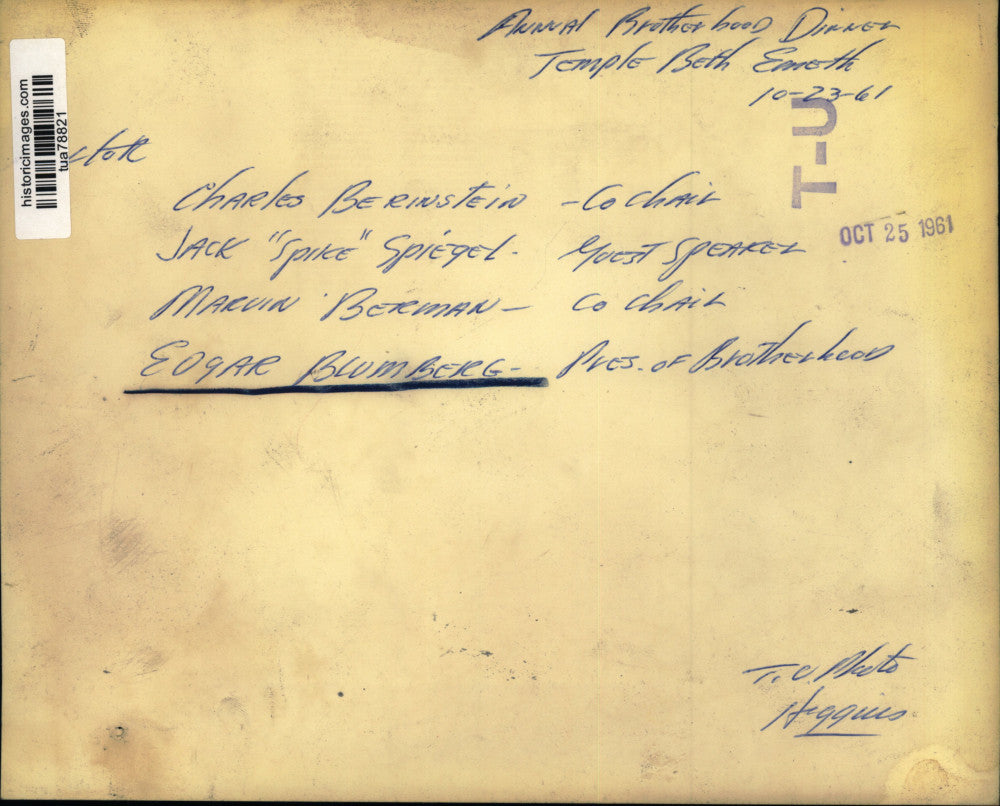 Annual Brotherhood Dinner
Temple Beth Emeth
10-23-61
historicimages.com
tua78821
T-U
OCT 25 1961
Charles Berinstein - Co Chair
Jack "Spike" Spiegel - Guest Speaker
Marvin Berman - Co Chair
Edgar Blumberg - Pres. of Brotherhood
T.U. Photo
Higgins